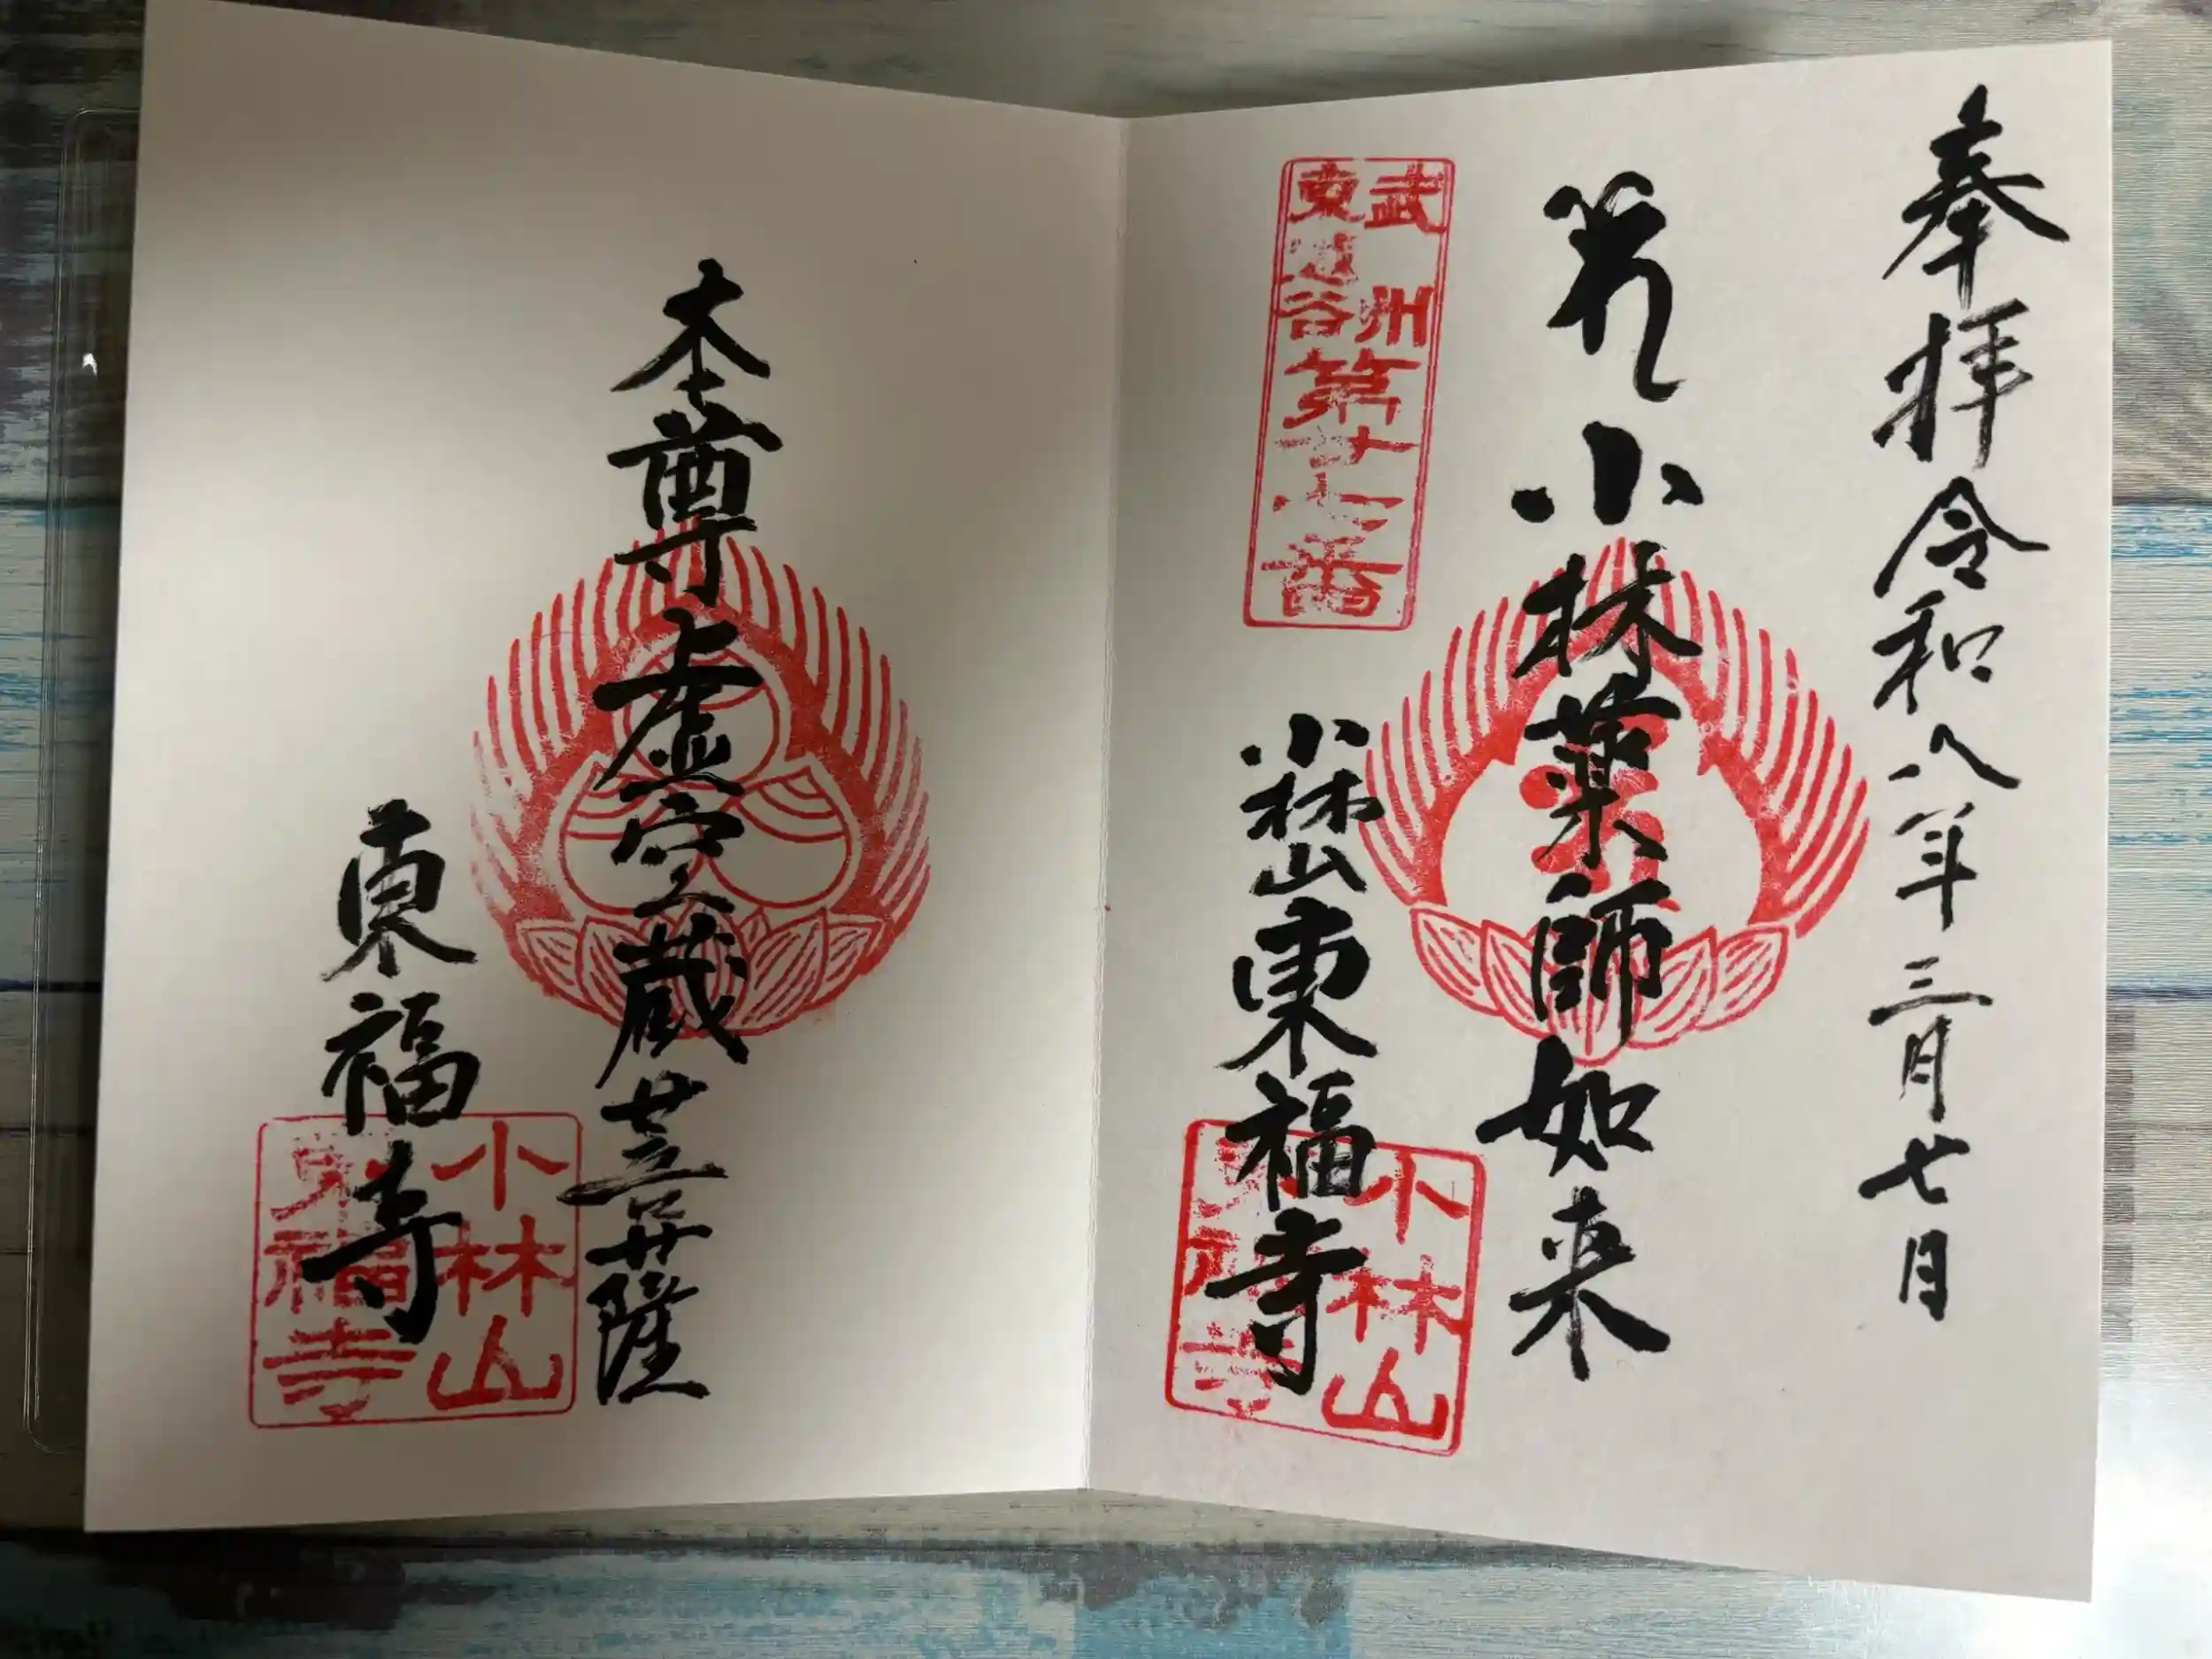 奉拝 令和八年三月七日
小林薬師如来
武州
第十七番
小林山東福寺
小林山
東福寺
本尊虚空蔵菩薩
東福寺
小林山
東福寺